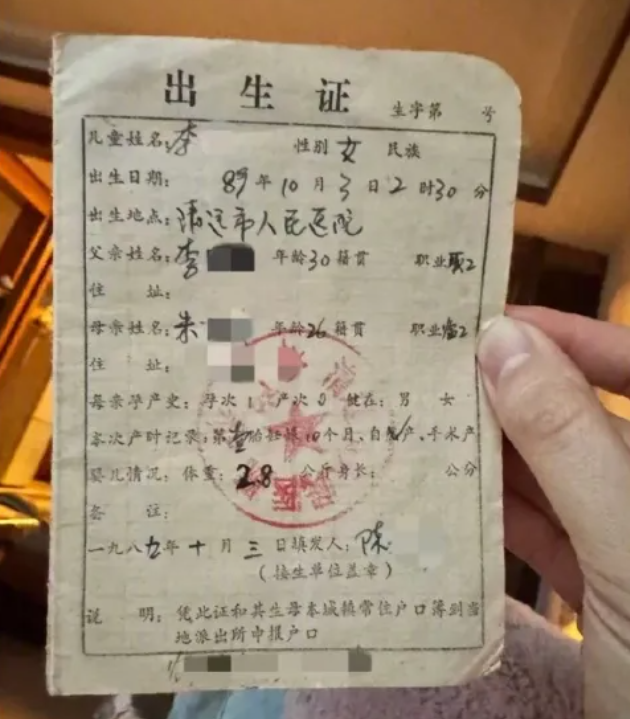 出生证
生字第 号
儿童姓名:李 性别女 民族
出生日期: 89年10月3日2时30分
出生地点:清远市人民医院
父亲姓名:李 年龄30籍贯 职业职工
住 址:
母亲姓名:朱 年龄26籍贯 职业
住 址:
母亲孕产史:孕次1 产次0 健在:男 女
本次产时记录:第壹胎妊娠10个月、自然产、手术产
婴儿情况:体重:2.8 公斤身长: 公分
备 注:
一九八九年十月三日填发人:陈
(接生单位盖章)
说 明:凭此证和其生母本城镇常住户口簿到当
地派出所申报户口